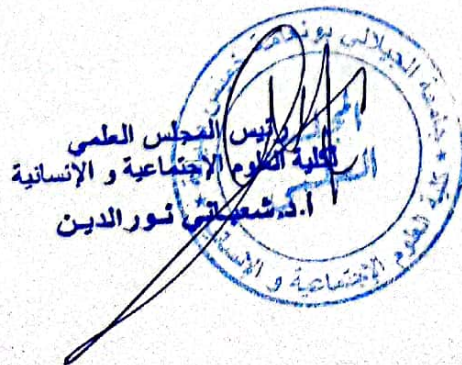 رئيس المجلس العلمي
لكلية العلوم الإجتماعية و الإنسانية
أ.د.شعباني نور الدين
جامعة الجيلالي بونعامة خميس
المجلس
العلمي
كلية العلوم الإجتماعية و الإنسانية